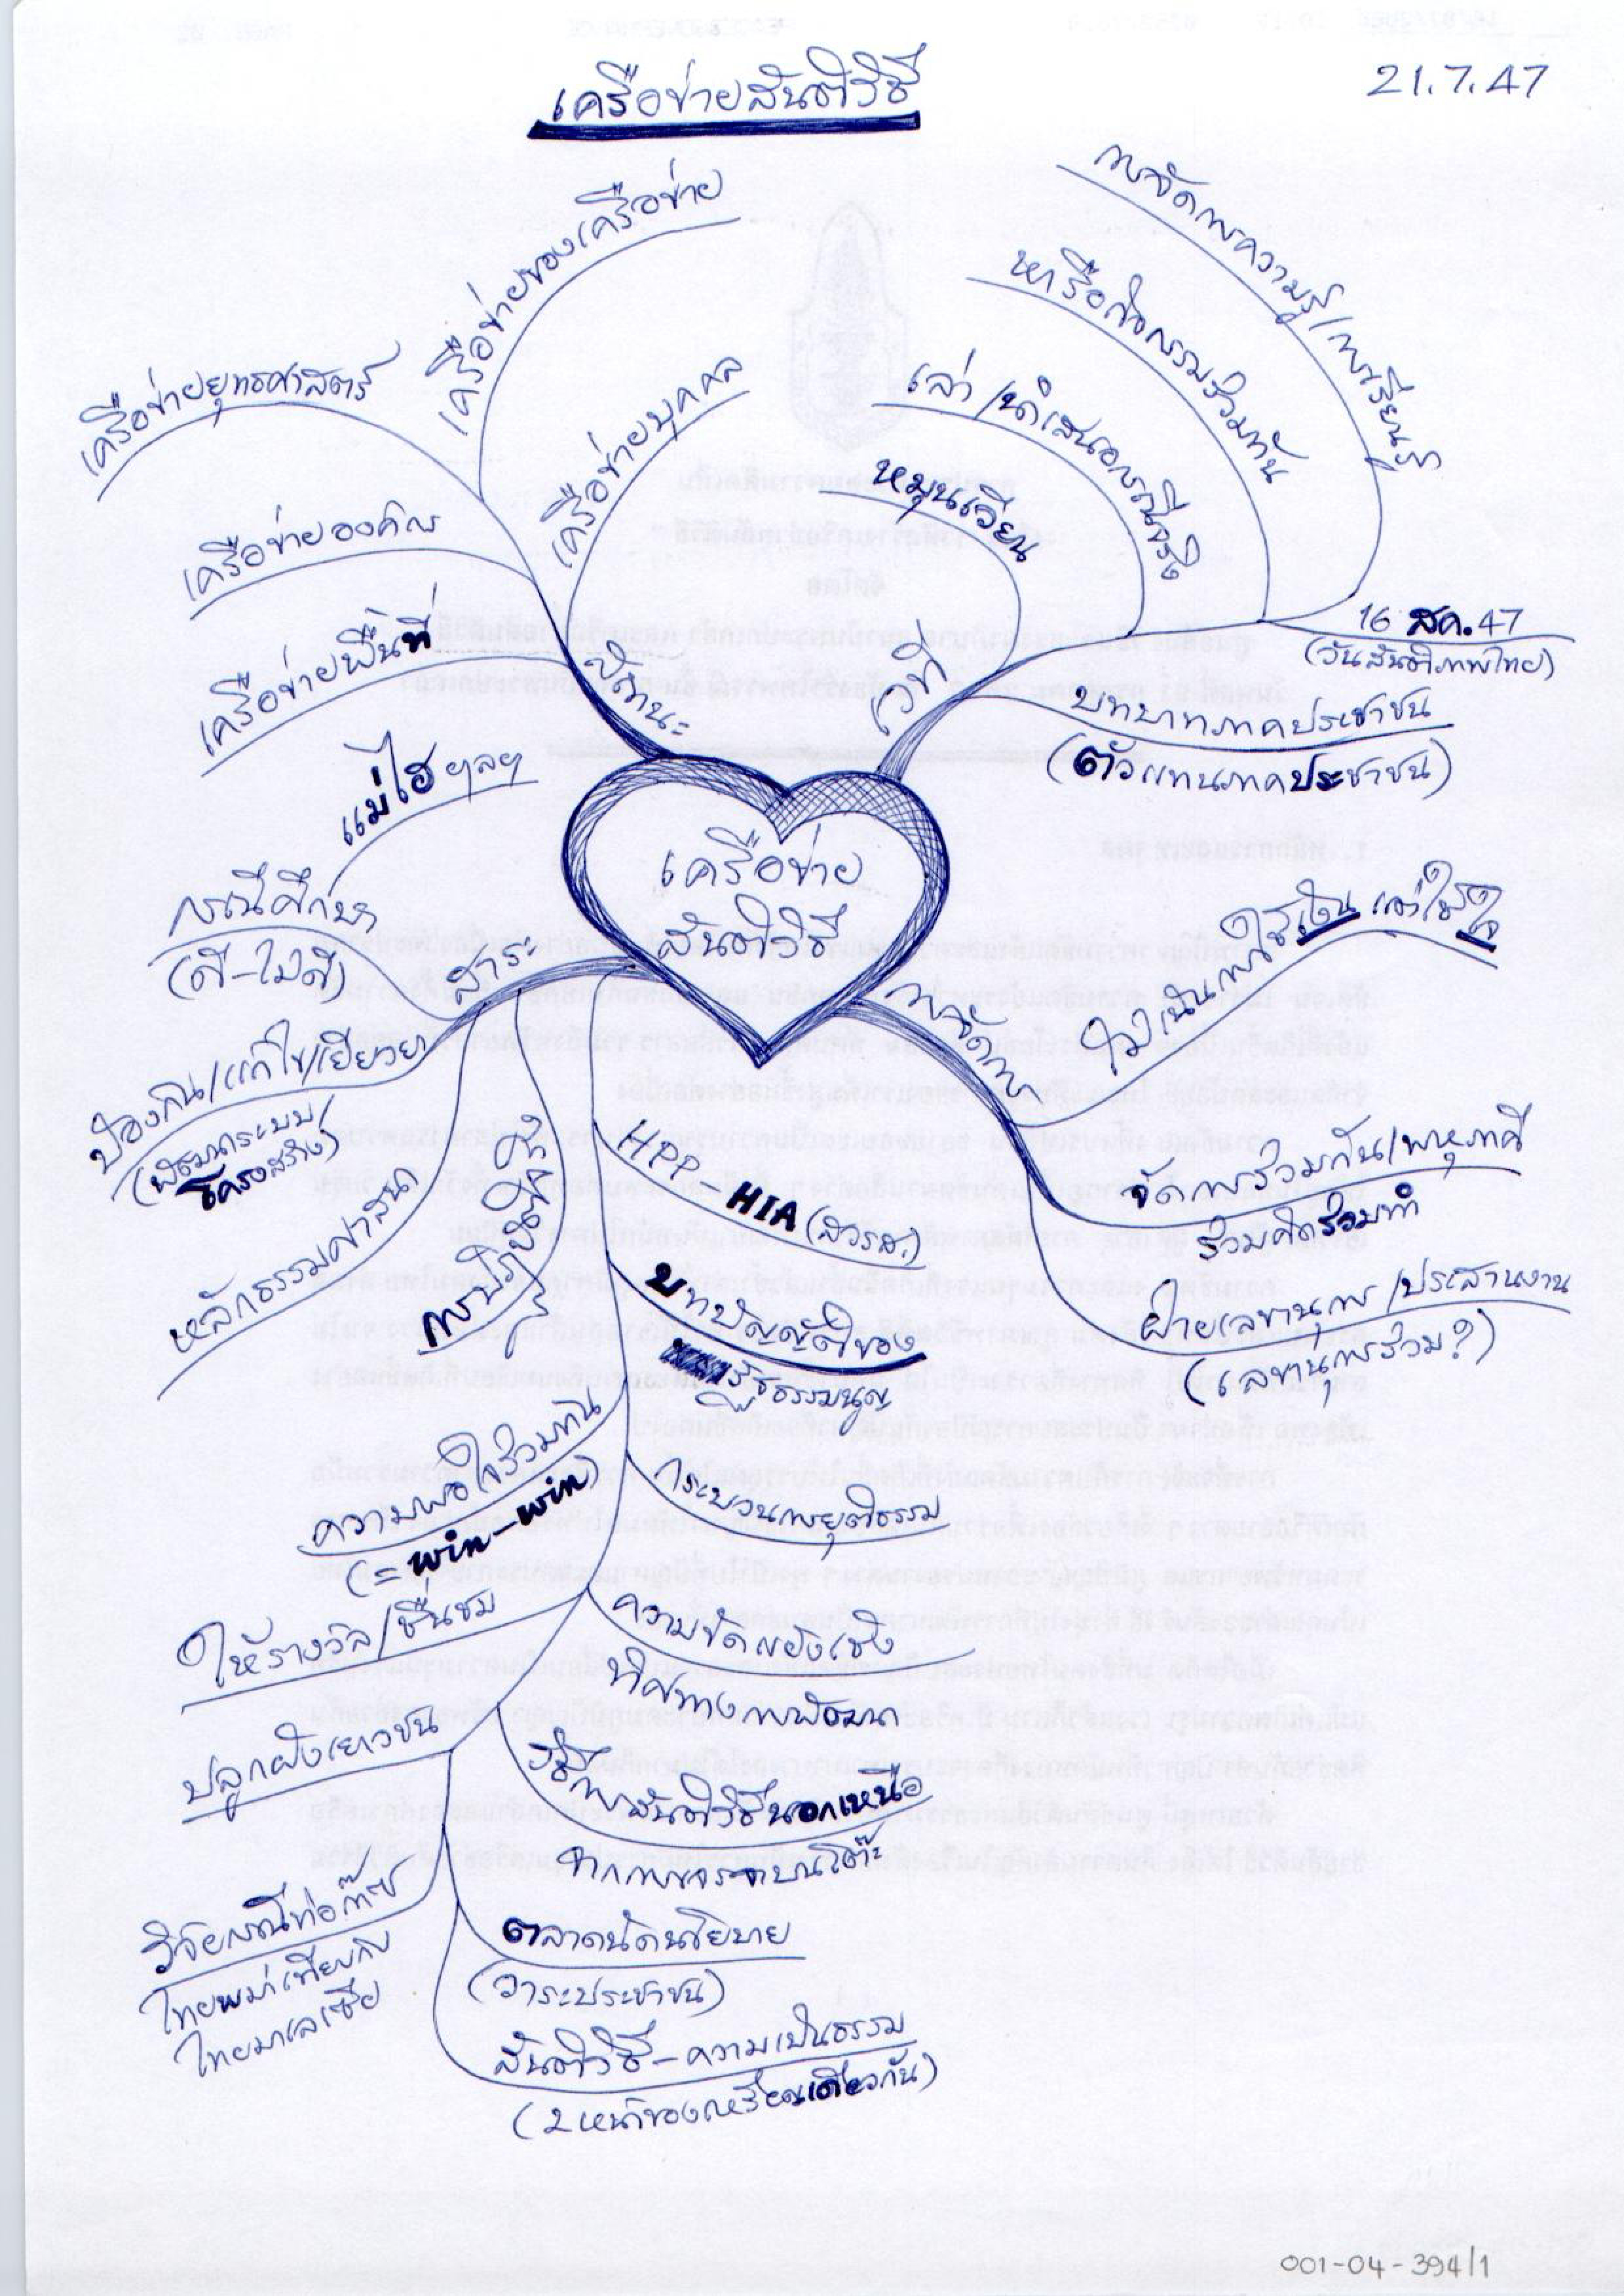 เครือข่ายสันติวิธี
21.7.47
เครือข่าย
สันติวิธี
เวที
หมุนเวียน
เล่า/นำเสนอกรณีจริง
หารือกิจกรรมร่วมกัน
การจัดการความรู้/การเรียนรู้
16 สค. 47
(วันสันติภาพไทย)
บทบาทภาคประชาชน
(ตัวแทนภาคประชาชน)
การจัดการ
ไม่เน้นการใช้เงิน แต่ใช้ใจ
จัดการร่วมกัน/พหุภาคี
ร่วมคิดร่วมทำ
ฝ่ายเลขานุการ/ประสานงาน
(เลขานุการร่วม?)
สาระ
HPP
HIA (สวรส.)
บทบัญญัติของ
รัฐธรรมนูญ
กระบวนการยุติธรรม
ความขัดแย้งเชิง
ทิศทางการพัฒนา
วิธีการสันติวิธีนอกเหนือ
จากการเจรจาบนโต๊ะ
ตลาดนัดนโยบาย
(วาระประชาชน)
สันติวิธี - ความเป็นธรรม
(2 หน้าของเหรียญเดียวกัน)
วิจัยกรณีท่อก๊าซ
ไทยพม่าเทียบกับ
ไทยมาเลเซีย
ปลูกฝังเยาวชน
ให้รางวัล/ชื่นชม
ความพอใจร่วมกัน
(= win-win)
การปฏิบัติจริง
หลักธรรมศาสนา
ป้องกัน/แก้ไข/เยียวยา
(พัฒนาระบบ/
โครงสร้าง)
กรณีศึกษา
(ดี-ไม่ดี)
แม่ไฮ ฯลฯ
ลักษณะ
เครือข่ายพื้นที่
เครือข่ายองค์กร
เครือข่ายยุทธศาสตร์
เครือข่ายของเครือข่าย
เครือข่ายบุคคล
001-04-394/1